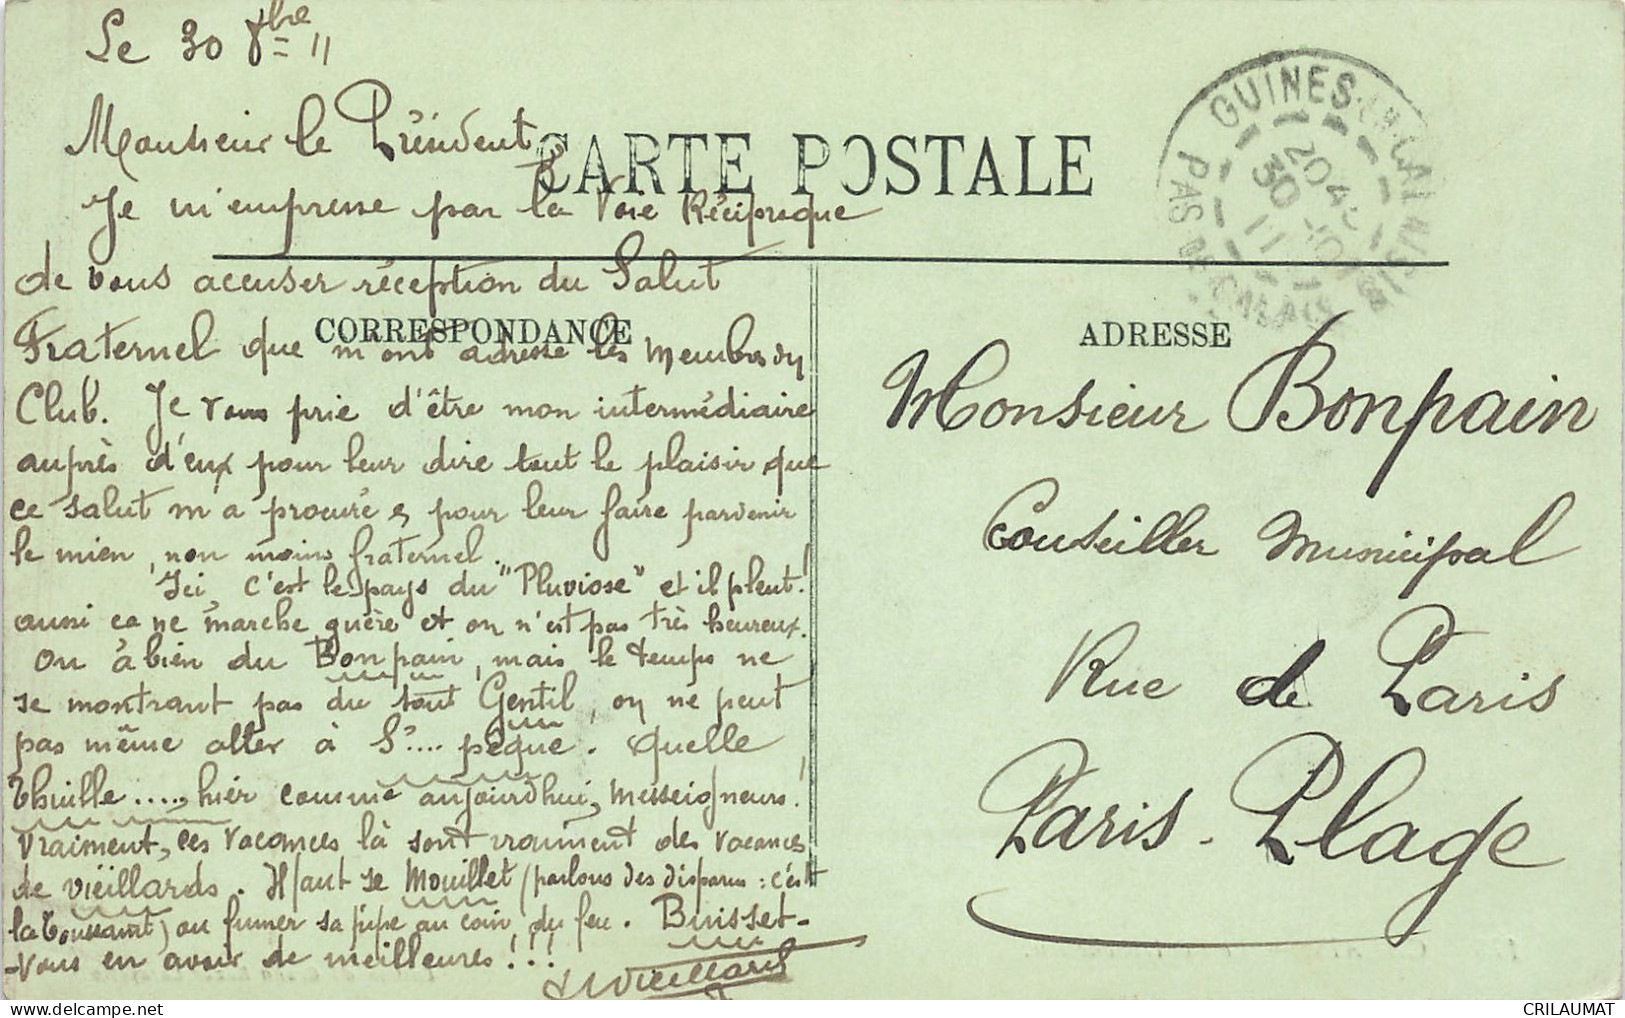 Le 30 8bre 11
Monsieur le Président
CARTE POSTALE
Je m'empresse par la Voie Réciproque
de vous accuser réception du Salut
Fraternel que m'ont adressé les Membres du
Club. Je vous prie d'être mon intermédiaire
auprès d'eux pour leur dire tout le plaisir que
ce salut m'a procuré & pour leur faire parvenir
le mien, non moins fraternel.
Ici, c'est le pays du "Pluviose" et il pleut!
aussi ça ne marche guère et on n'est pas très heureux.
On a bien du Bonpain, mais le temps ne
se montrant pas du tout Gentil, on ne peut
pas même aller à S?.... pêque. Quelle
Thuille ...., hier comme aujourd'hui, Messeigneurs!
Vraiment, ces vacances là sont vraiment des vacances
de vieillards. Il faut se Mouillet (parlons des disparus : c'est
la Toussaint) ou fumer sa pipe au coin du feu. Buisset-
-vous en avoir de meilleures!!!
Vieillard
CORRESPONDANCE
ADRESSE
Monsieur Bonpain
Conseiller Municipal
Rue de Paris
Paris-Plage
GUINES-EN-CALAISIS
20 45
30 -10
11
PAS DE CALAIS
CRILAUMAT